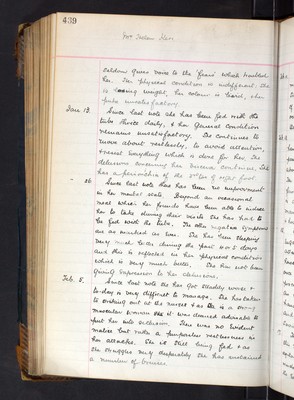 439
seldom gives voice to the fears which troubled
her. Her physical condition is indifferent. She
is losing weight, her colour is bad, she
Jan 13. Since last note she has been fed with the
tube thrice daily, & her general condition
remains unsatisfactory. She continues to
move about restlessly, to avoid attention,
& resist everything which is done for her. Her
delusions concerning her continue. She
has a periostitis of the 2nd toe of right foot.
- 26 Since last note there has been no improvement
in her mental state. Beyond an occasional
meal which her friends have been able to induce
her to take during their visits she has had to
be fed with the tube. The other symptoms
are as marked as ever. She has been sleeping
very much better during the past 4 or 5 days
and this is reflected in her physical condition
which is very much better. She has not been
giving expression to her delusions.
Feb. 5. Since last note she has got steadily worse &
to-day is very difficult to manage. She has taken
to striking out at the nurses & as she is a
muscular woman it was deemed advisable to
put her into seclusion. There was no evident
malice but rather a purposeless restlessness in
her attacks. She is still being fed & as
she struggles very desperately she has sustained
a number of bruises.